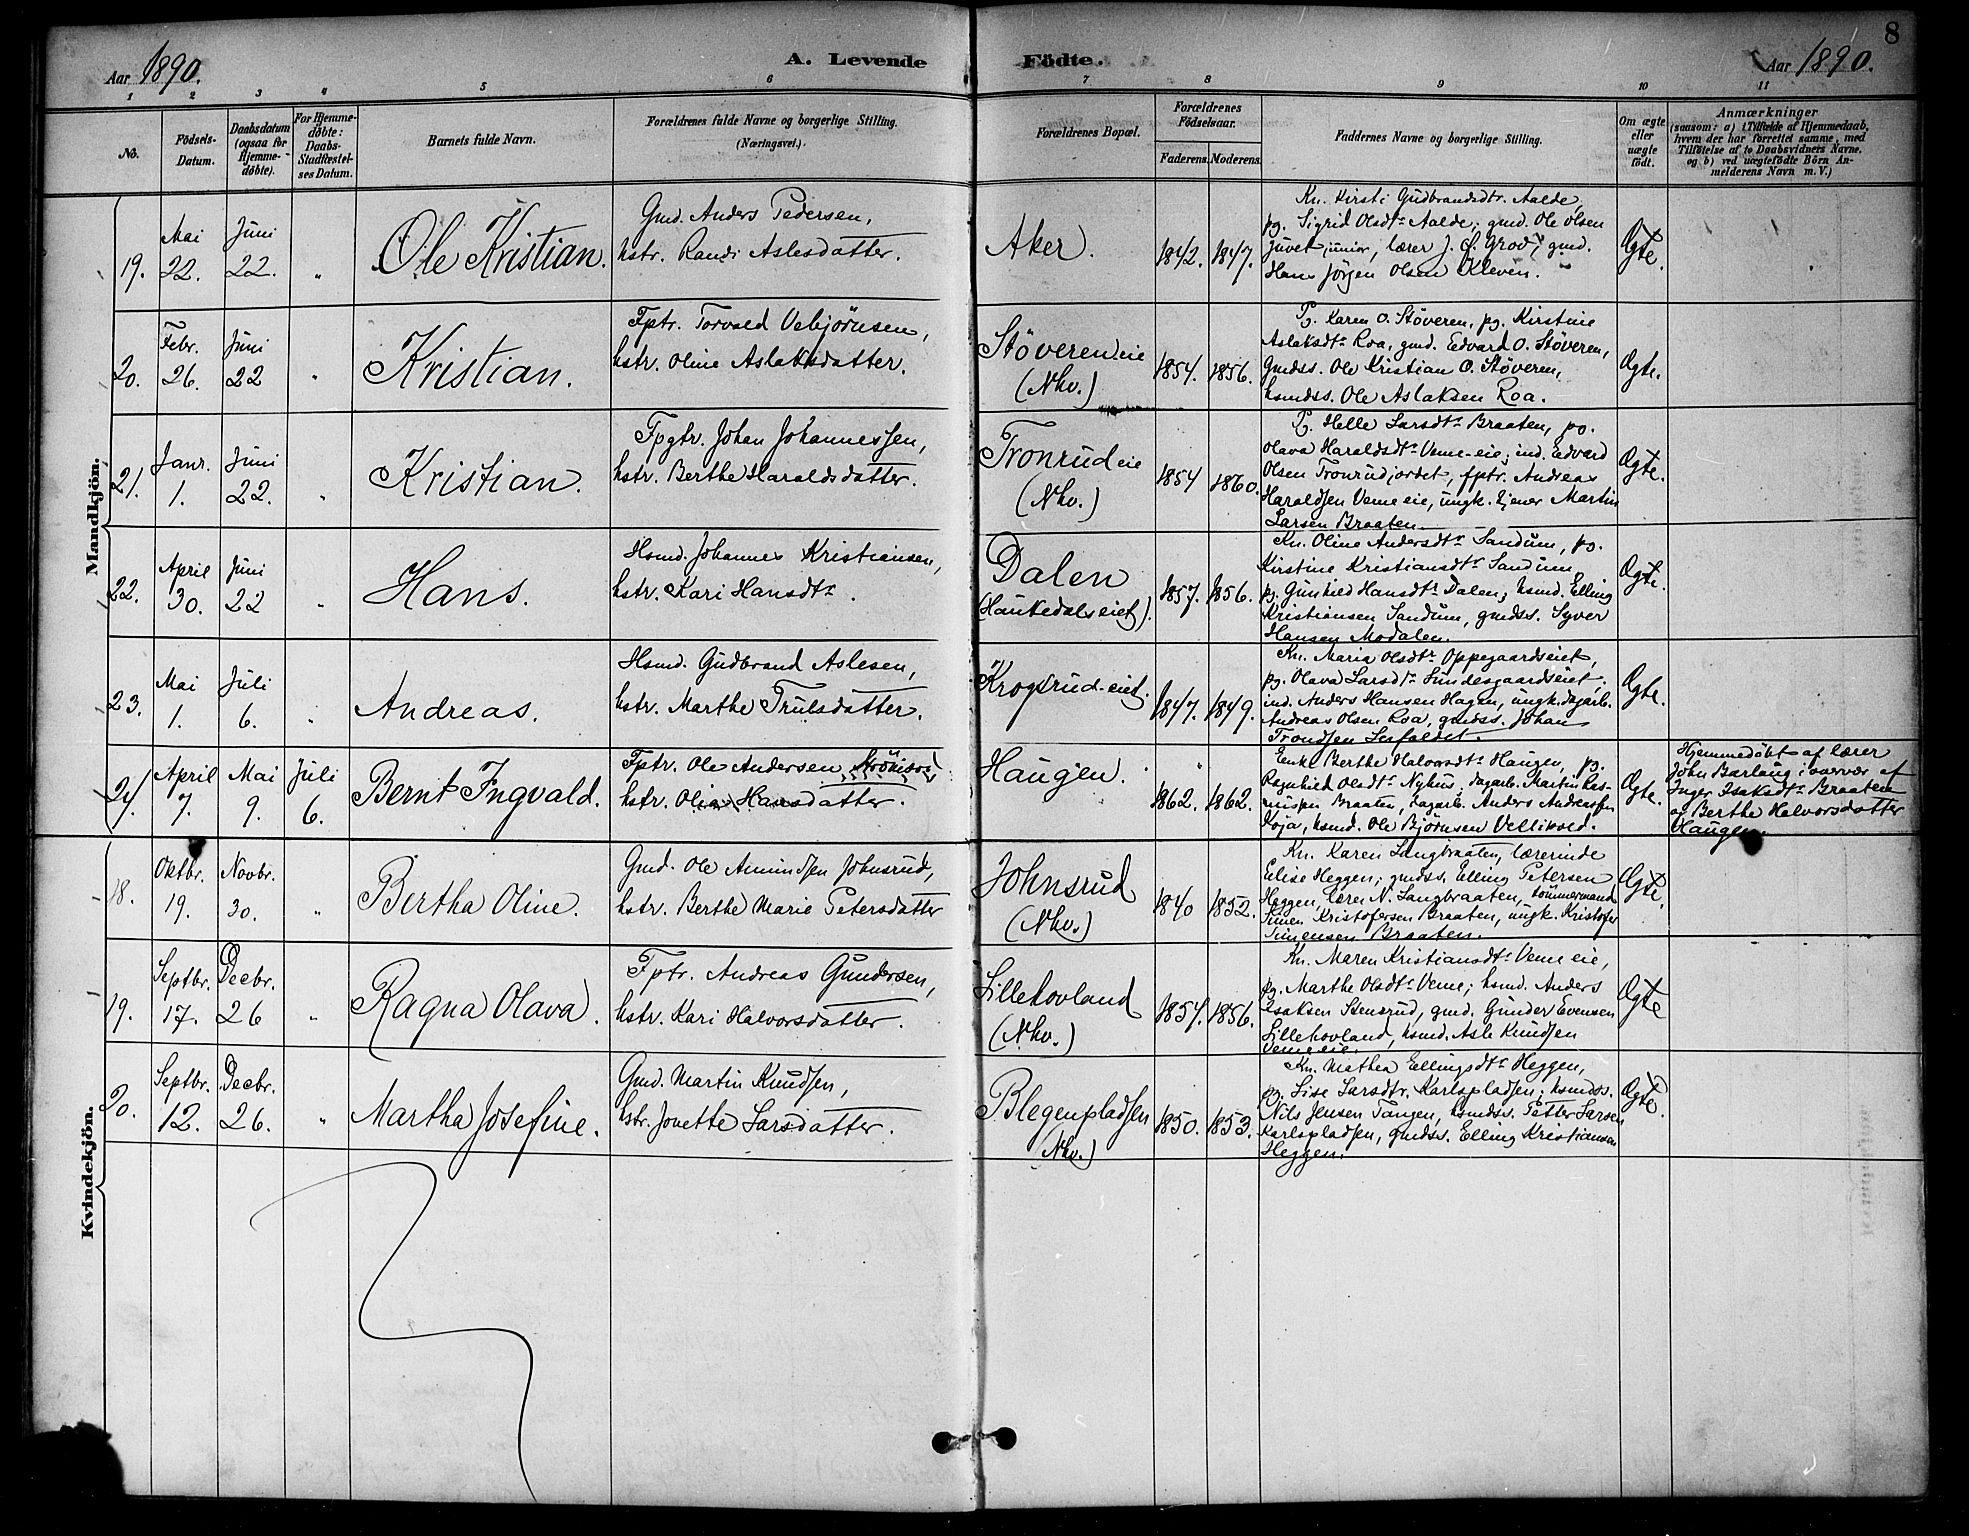 8
Aar 1890.
A. Levende Födte.
Aar 1890.
1 2 3 4 5 6 7 8 9 10 11
No.
Födsels-
Datum.
Daabsdatum
(ogsaa for
Hjemme-
døbte).
For Hjemme-
døbte:
Daabs-
Stadfæstel-
ses Datum.
Barnets fulde Navn.
Forældrenes fulde Navne og borgerlige Stilling.
(Næringsvei.)
Forældrenes Bopæl.
Forældrenes
Födselsaar.
Faderens. Moderens.
Faddernes Navne og borgerlige Stilling.
Om ægte
eller
uægte
født.
Anmærkninger
(saasom: a) i Tilfælde af Hjemmedaab,
hvem der har forrettet samme, med
Tilföielse af to Daabsvidners Navne,
og b) ved uægtefødte Börn An-
melderens Navn m. V.)
Mandkjön.
19.
Mai
22.
Juni
22.
"
Ole Kristian.
Gmd. Anders Pedersen,
hstr. Randi Aslesdatter.
Aker.
1842. 1847.
Kn. Kirsti Gudbrandsdtr. Aalde,
pg. Sigrid Olsdtr Aalde; gmd. Ole Olsen
Juvet junior, lærer J. C. Grov, gmd.
Hans Jörgen Olsen Kleven.
Ægte.
20.
Febr.
26.
Juni
22
"
Kristian.
Fptr. Torvald Vebjörnsen,
hstr. Oline Aslaksdatter.
Stöveren eie
(Nhv.)
1854. 1856.
Pg. Karen O. Stöveren, pg. Kirstine
Aslaksdtr Roa, gmd. Edvard O. Stöveren,
Gmdss. Ole Kristian O. Stöveren,
hsmdss. Ole Aslaksen Roa.
Ægte.
21.
Janr.
1.
Juni
22.
"
Kristian.
Fpgtr. Johan Johannessen,
hstr. Berthe Haraldsdatter.
Tronrud eie
(Nhv.)
1854 1860.
Pg. Helle Larsdtr Braaten, pg.
Olava Haraldsdtr Veme-eie; ind. Edvard
Olsen Tronrudjordet, fptr. Andreas
Haraldsen Veme eie, ungk. tjener Martin
Larsen Braaten.
Ægte.
22.
April
30.
Juni
22
"
Hans.
Hsmd. Johannes Kristiansen,
hstr. Kari Hansdtr.
Dalen
(Haukedalseiet).
1857. 1856.
Kn. Oline Andersdtr Sandum, pg.
Kirstine Kristiansdtr Sandum,
pg. Gunhild Hansdtr Dalen; hsmd. Elling
Kristiansen Sandum, gmdss. Syver
Hansen Modalen.
Ægte.
23.
Mai
1.
Juli
6.
"
Andreas.
Hsmd. Gudbrand Aslesen,
hstr. Marthe Trulsdatter.
Krogsrud-eiet.
1847. 1849.
Kn. Maria Olsdtr Oppegaardseiet,
pg. Olava Larsdtr Sundesgaardseiet,
ind. Anders Hansen Hagen, ungk. dagarb.
Andreas Olsen Roa, gmdss. Johan
Trondsen
Ægte.
24.
April
7.
Mai
9.
Juli
6.
Bernt Ingvald.
Fptr. Ole Andersen
hstr. Olia Hansdatter.
Haugen.
1862. 1862.
Enke Berthe Halvorsdtr Haugen, pg.
Ragnhild Olsdtr Nyhus; dagarb. Martin Ras-
mussen Braaten, dagarb. Anders Andreassen
hsmd. Ole Björnsen Vellikold.
Ægte.
Hjemmedöbt af lærer
John Barlaug i overvær af
Inger Isaksdtr Braaten
og Berthe Halvorsdatter
Haugen.
Kvindekjön.
18.
Oktbr.
19.
Novbr.
30.
"
Bertha Oline.
Gmd. Ole Amundsen Johnsrud,
hstr. Berthe Marie Petersdatter
Johnsrud
(Nhv.)
1840 1852.
Kn. Karen Langbraaten, lærerinde
Elise Heggen; gmdss. Elling Petersen
Heggen, lærer N. Langbraaten, tömmermand
Simen Kristofersen Braaten, ungk. Kristofer
Simensen Braaten.
Ægte.
19.
Septbr.
17.
Decbr.
26
"
Ragna Olava.
Fptr. Andreas Gundersen,
hstr. Kari Halvorsdatter.
Lillehovland
(Nhv.)
1854. 1856.
Kn. Maren Kristiansdtr Veme eie,
pg. Marthe Olsdtr Veme; hsmd. Anders
Isaksen Stensrud, gmd. Gunder Evensen
Lillehovland, hsmd. Asle Knudsen
Veme eie.
Ægte
20.
Septbr.
12.
Decbr.
26.
"
Martha Josefine.
Gmd. Martin Knudsen,
hstr. Jonette Larsdatter.
Blegenpladsen
(Nhv.)
1850. 1853.
Kn. Mathea Ellingsdtr Heggen,
pg. Lise Larsdtr. Karlspladsen; hsmdss.
Nils Jensen Tangen, hsmdss. Petter Larsen
Karlspladsen, gmdss. Elling Kristiansen
Heggen.
Ægte.